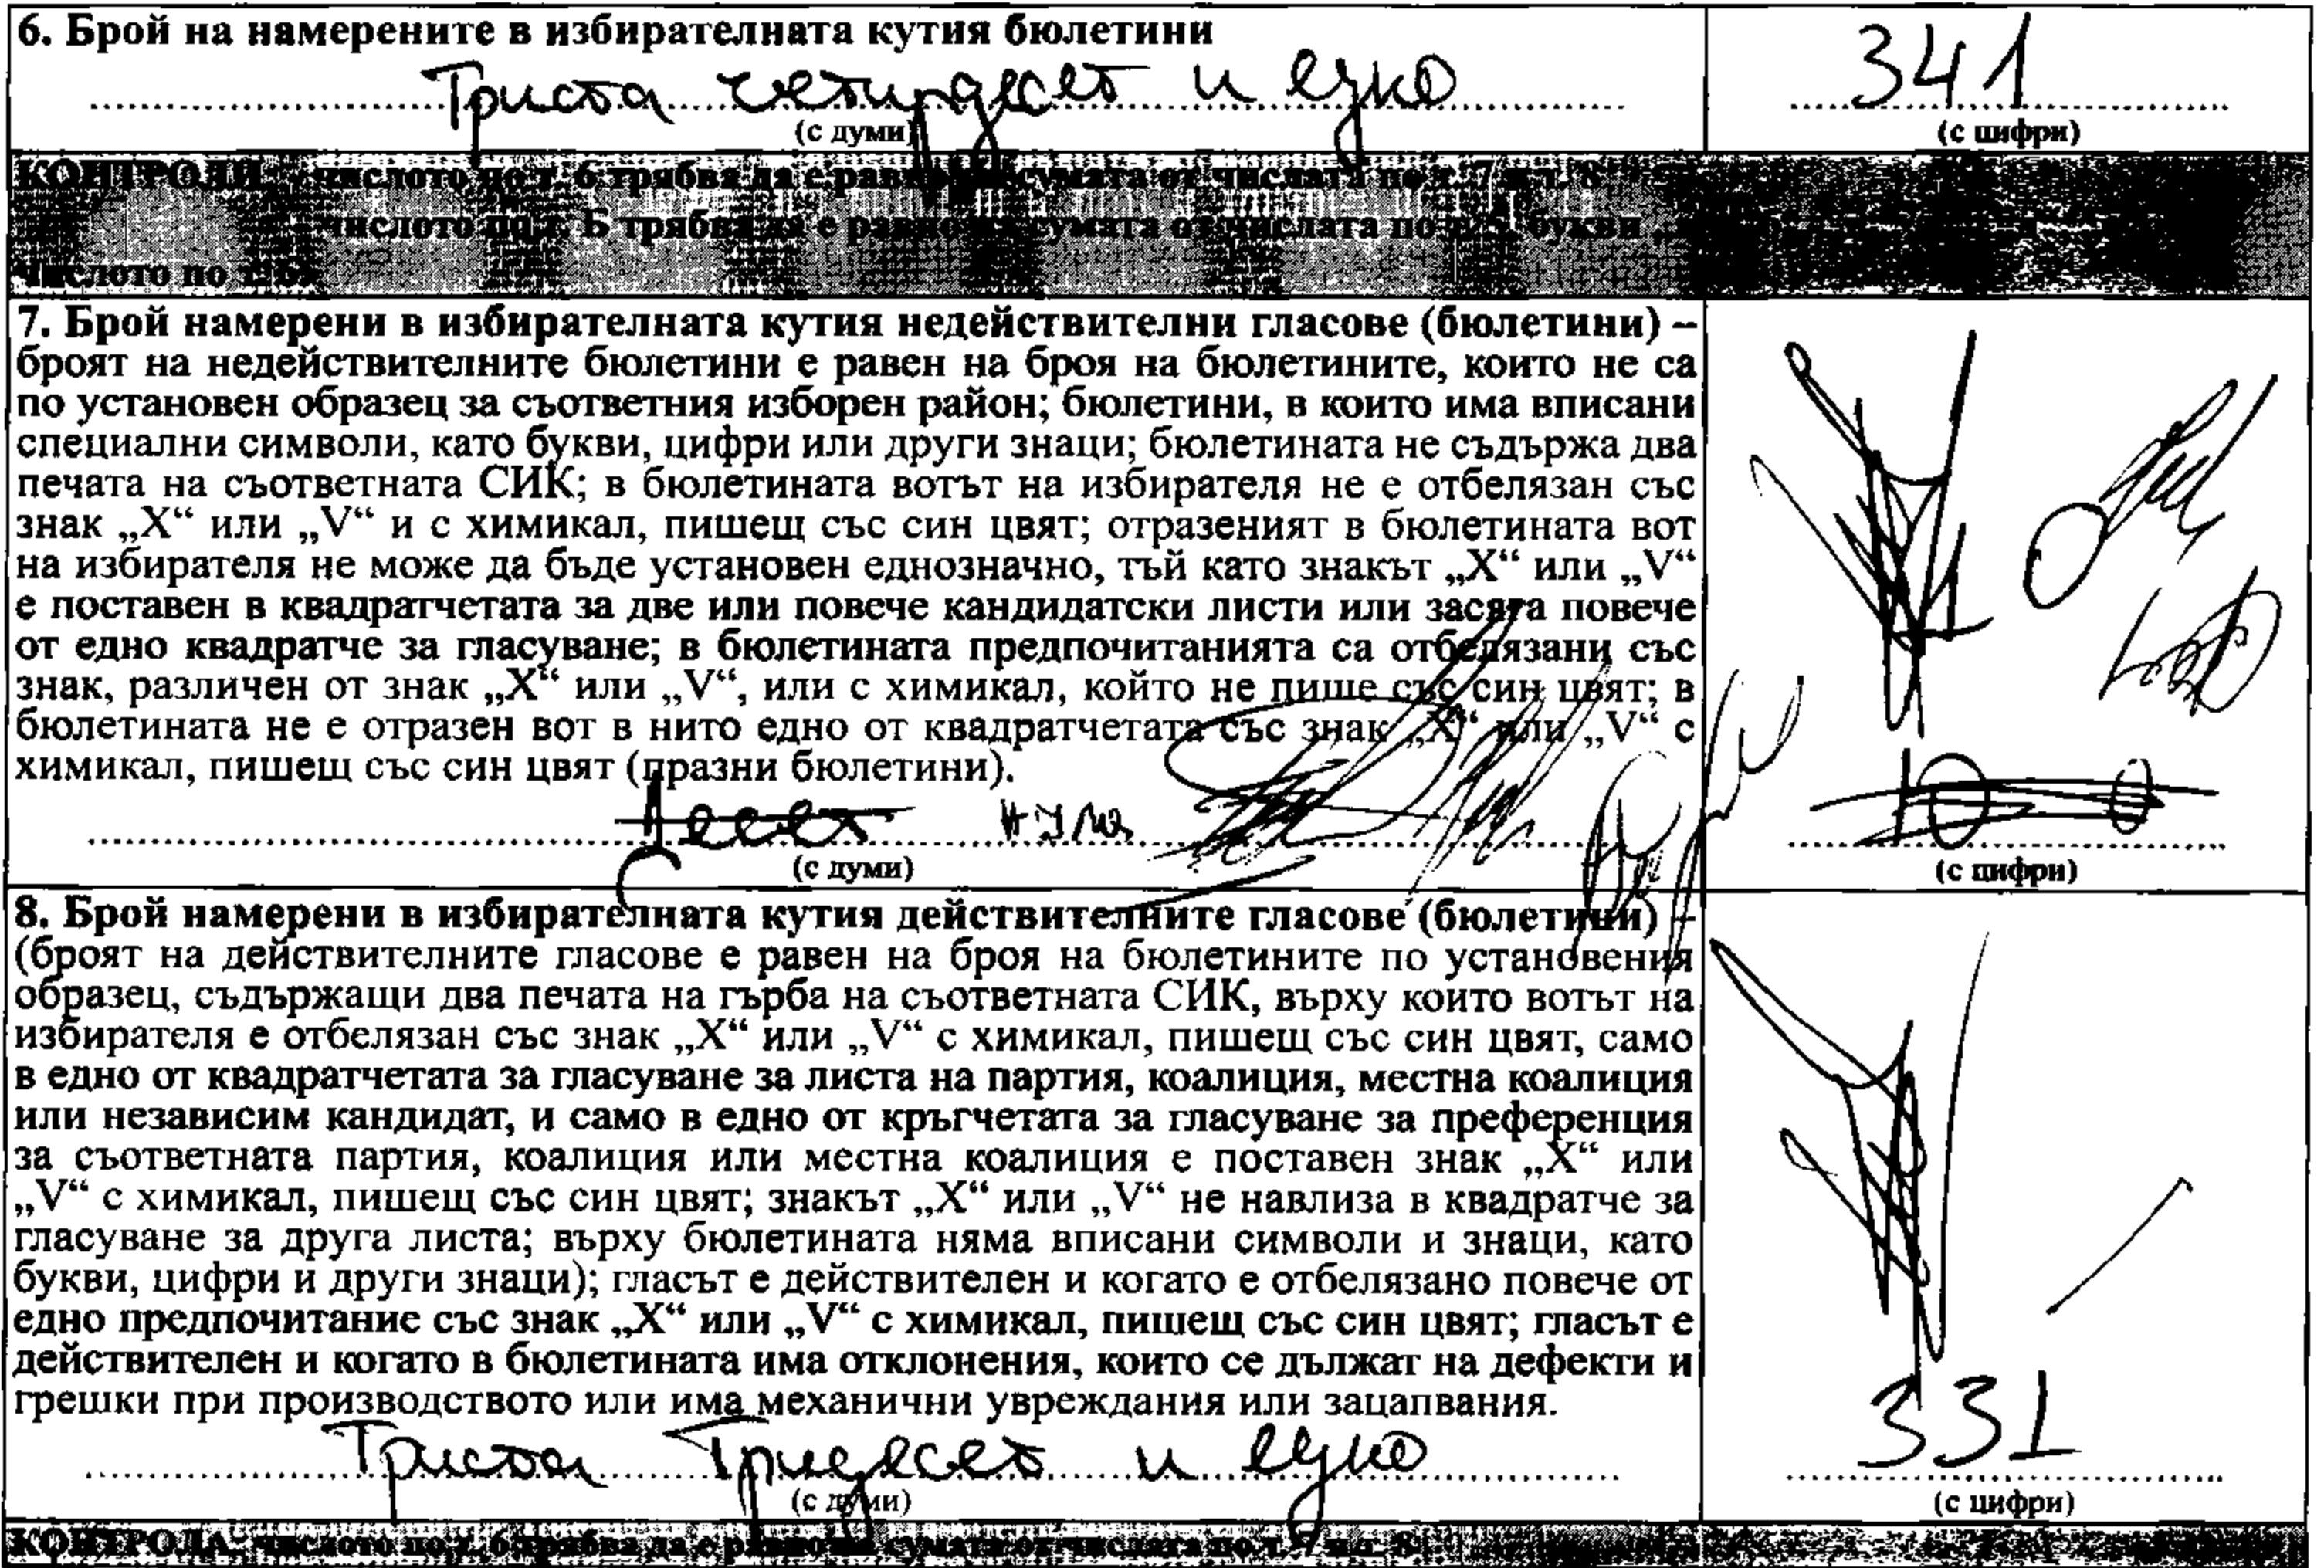 6. Брой на намерените в избирателната кутия бюлетини
341
Триста четирдесет и едно
(с думи)
(с цифри)
КОНТРОЛИ: числото по т. 6 трябва да е равно на сумата от числата по т. 7 и т. 8
числото по т. Б трябва да е равно на сумата от числата по т. 5, букви
числото по т. 6
7. Брой намерени в избирателната кутия недействителни гласове (бюлетини) –
броят на недействителните бюлетини е равен на броя на бюлетините, които не са
по установен образец за съответния изборен район; бюлетини, в които има вписани
специални символи, като букви, цифри или други знаци; бюлетината не съдържа два
печата на съответната СИК; в бюлетината вотът на избирателя не е отбелязан със
знак „X“ или „V“ и с химикал, пишещ със син цвят; отразеният в бюлетината вот
на избирателя не може да бъде установен еднозначно, тъй като знакът „X“ или „V“
е поставен в квадратчетата за две или повече кандидатски листи или засяга повече
от едно квадратче за гласуване; в бюлетината предпочитанията са отбелязани със
знак, различен от знак „X“ или „V“, или с химикал, който не пише със син цвят; в
бюлетината не е отразен вот в нито едно от квадратчетата със знак „X“ или „V“ с
химикал, пишещ със син цвят (празни бюлетини).
Десет нула
10 0
(с думи)
(с цифри)
8. Брой намерени в избирателната кутия действителните гласове (бюлетини) –
(броят на действителните гласове е равен на броя на бюлетините по установения
образец, съдържащи два печата на гърба на съответната СИК, върху които вотът на
избирателя е отбелязан със знак „X“ или „V“ с химикал, пишещ със син цвят, само
в едно от квадратчетата за гласуване за листа на партия, коалиция, местна коалиция
или независим кандидат, и само в едно от кръгчетата за гласуване за преференция
за съответната партия, коалиция или местна коалиция е поставен знак „X“ или
„V“ с химикал, пишещ със син цвят; знакът „X“ или „V“ не навлиза в квадратче за
гласуване за друга листа; върху бюлетината няма вписани символи и знаци, като
букви, цифри и други знаци); гласът е действителен и когато е отбелязано повече от
едно предпочитание със знак „X“ или „V“ с химикал, пишещ със син цвят; гласът е
действителен и когато в бюлетината има отклонения, които се дължат на дефекти и
грешки при производството или има механични увреждания или зацапвания.
331
Триста Тридесет и едно
(с думи)
(с цифри)
КОНТРОЛА: числото по т. 6 трябва да е равно на сумата от числата по т. 7 и т. 8